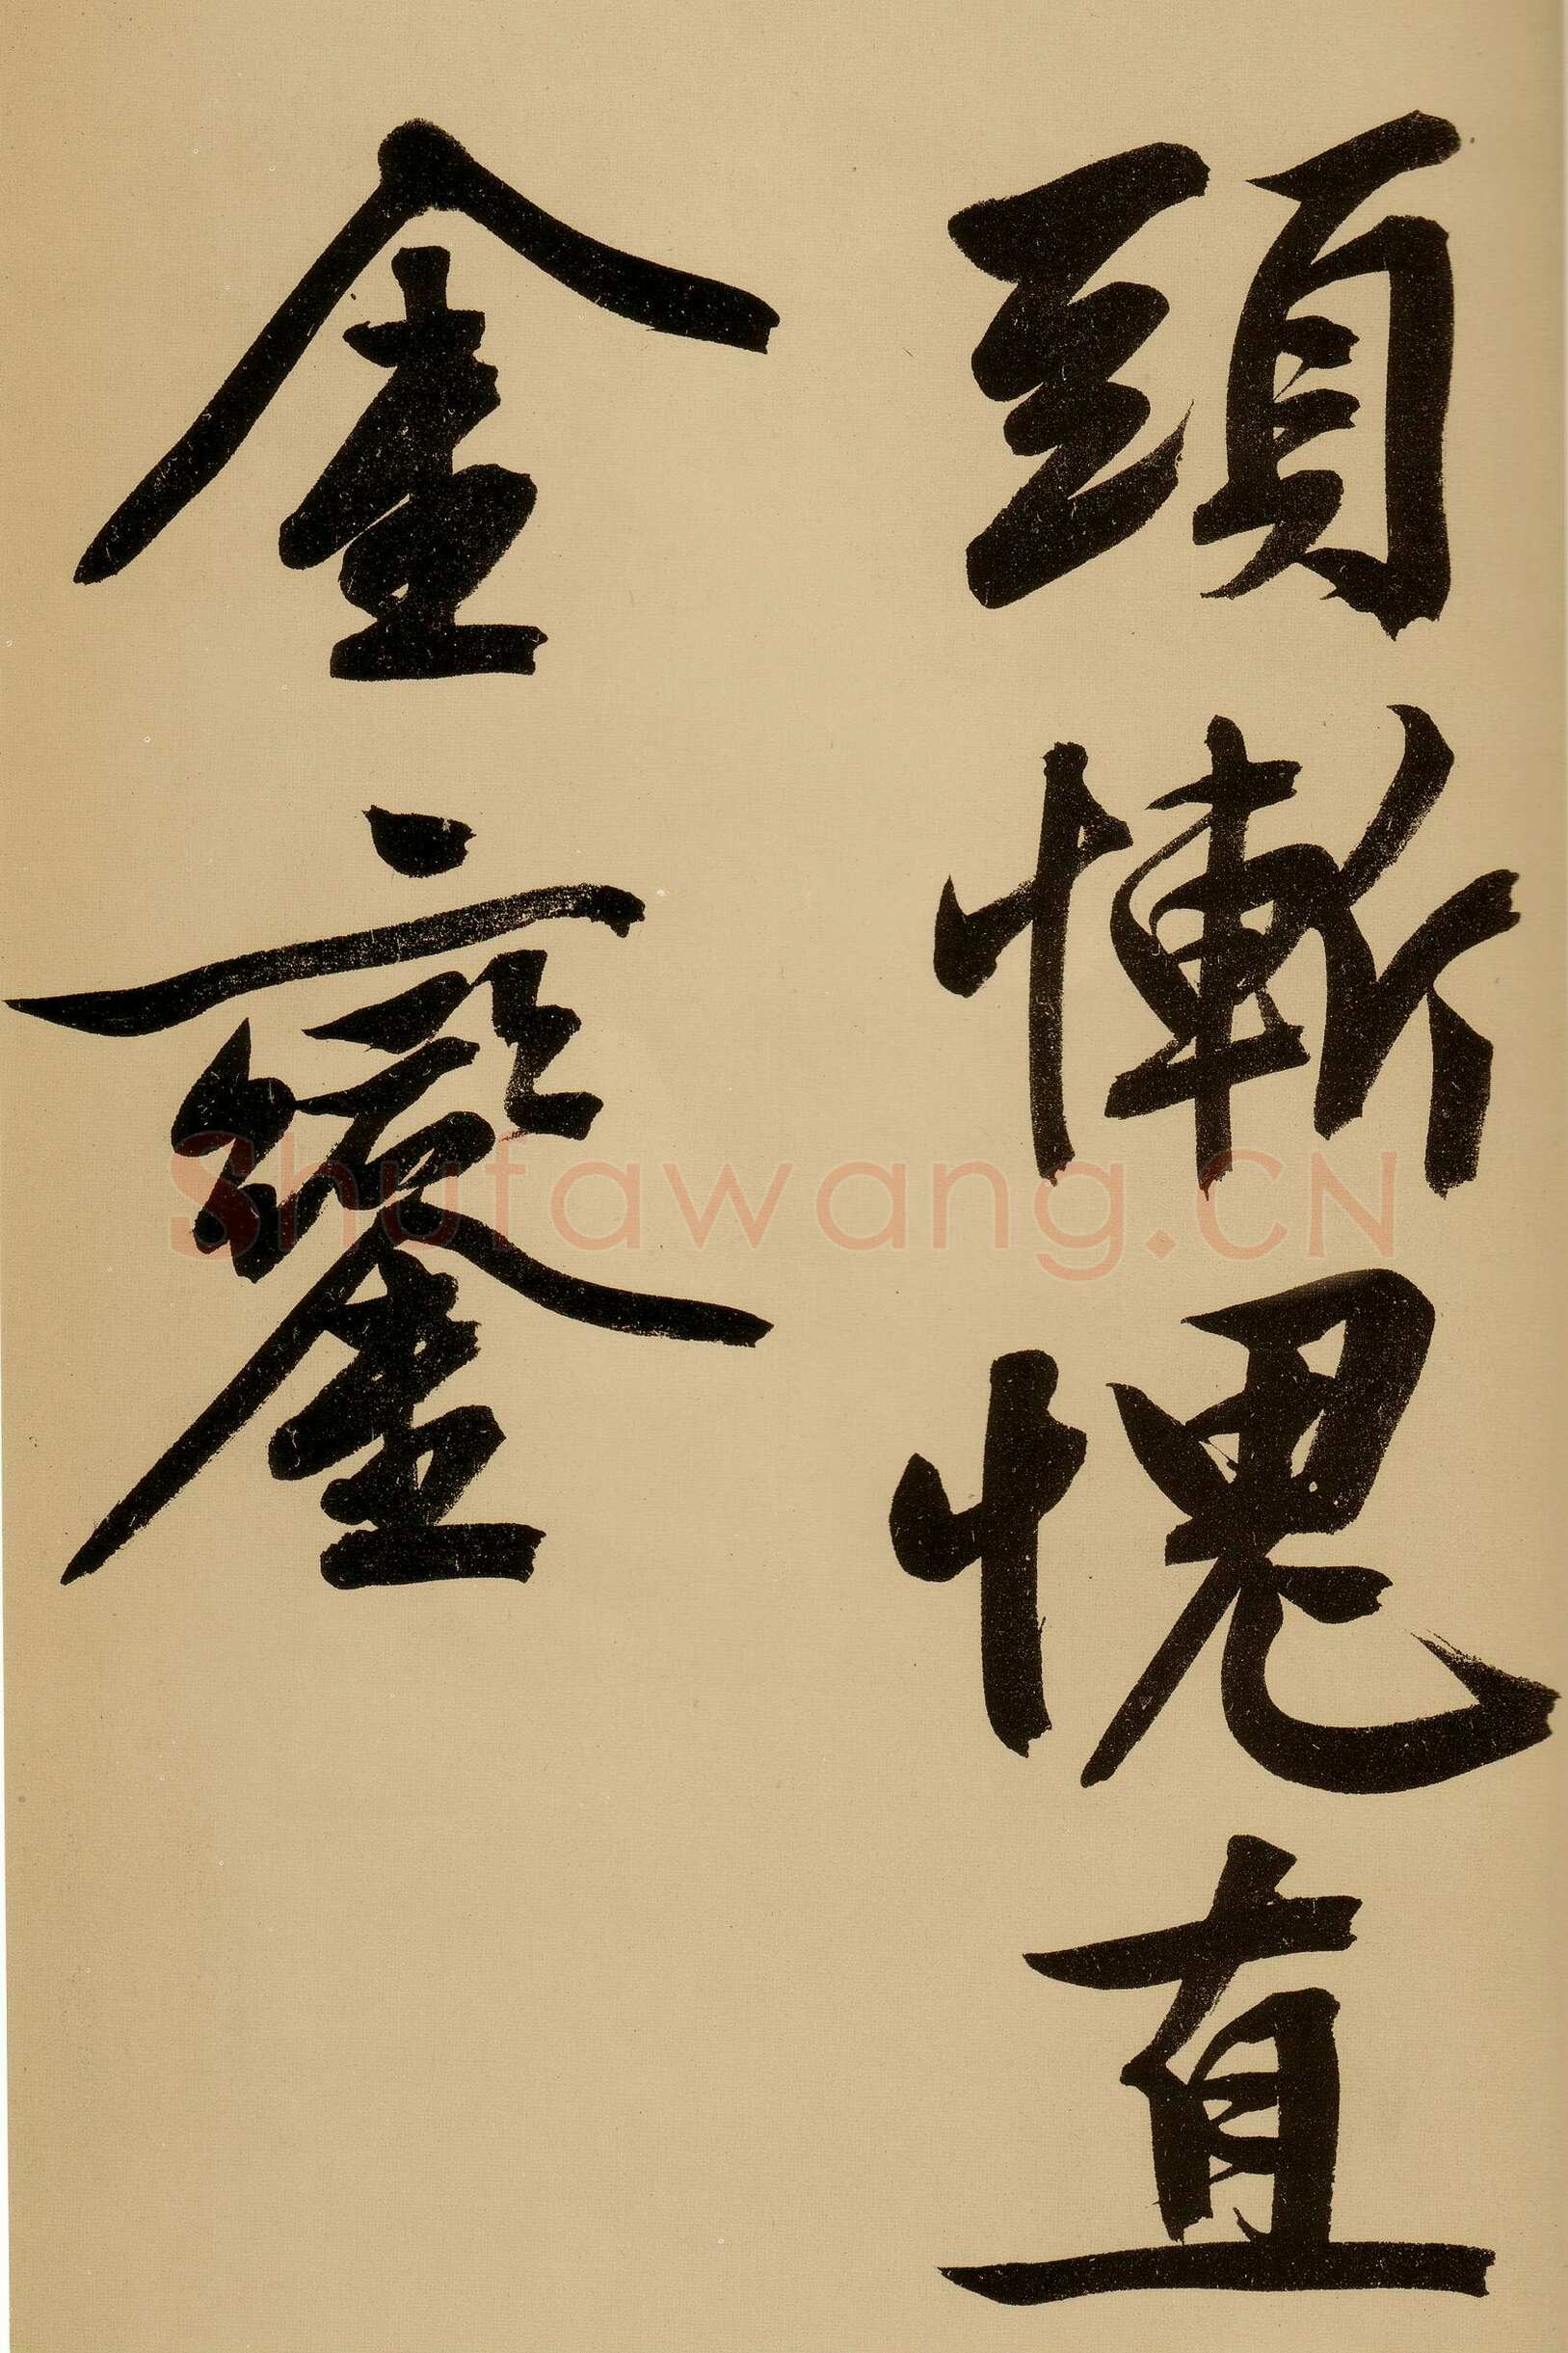 頭慚愧直
金鑾
Shufawang.CN